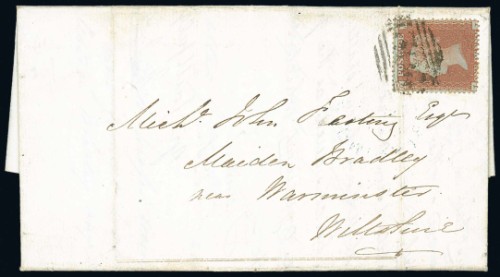 Mich^l. John Festing Esqr
Maiden Bradley
near Warminster
Wiltshire